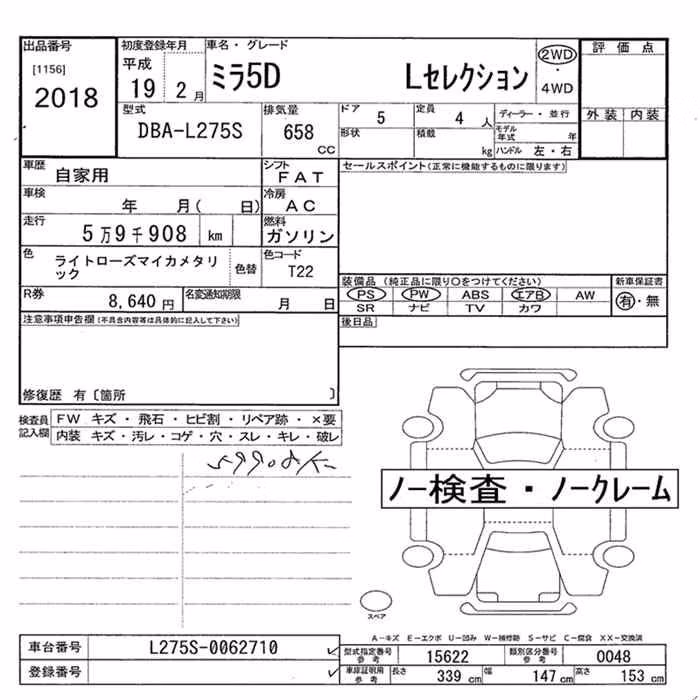 出品番号
[1156]
2018
初度登録年月
平成
19 2 月
車名・グレード
ミラ5D Lセレクション
2WD
・
4WD
評価点
外装 内装
型式
DBA-L275S
排気量
658
CC
ドア 5
形状
定員 4 人
積載 kg
ディーラー・並行
モデル年式 年
ハンドル 左・右
車歴
自家用
シフト
FAT
セールスポイント(正常に機能するものに限ります)
車検
年 月( 日)
冷房
AC
走行
5万9千908 km
燃料
ガソリン
色
ライトローズマイカメタリ
ック
色替
色コード
T22
装備品 (純正品に限り○をつけてください)
PS PW ABS エアB AW
SR ナビ TV カワ
新車保証書
有・無
R券
8,640 円
名変通知期限
月 日
後日品
注意事項申告欄(不具合内容等は具体的に記入して下さい)
修復歴 有〔箇所 〕
検査員
記入欄
FW キズ・飛石・ヒビ割・リペア跡・×要
内装 キズ・汚レ・コゲ・穴・スレ・キレ・破レ
59908K
ノー検査・ノークレーム
スペア
A-キズ E-エクボ U-凹み W-補修跡 S-サビ C-腐食 XX-交換済
車台番号 L275S-0062710
登録番号
型式指定番号
参考
15622
類別区分番号
参考
0048
車庫証明用
参考
長さ 339 cm 幅 147 cm 高さ 153 cm